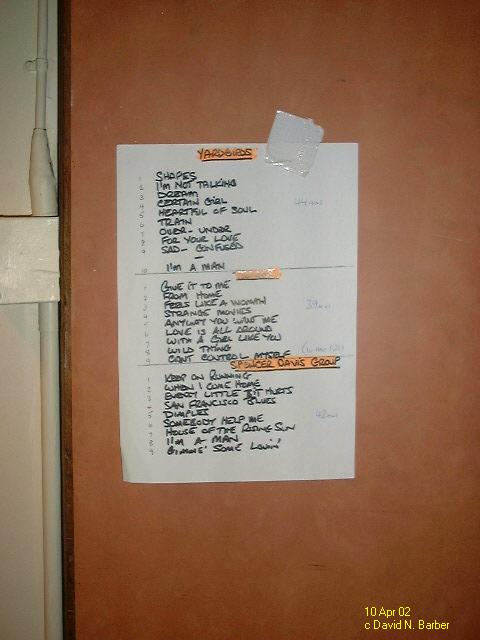 YARDBIRDS
1 SHAPES
2 I'M NOT TALKING
3 DREAM
4 CERTAIN GIRL
5 HEARTFUL OF SOUL
6 TRAIN
7 OVER-UNDER
8 FOR YOUR LOVE
9 SAD-CONFUSED
10 I'M A MAN
1 GIVE IT TO ME
2 FROM HOME
3 FEELS LIKE A WOMAN
4 STRANGE MOVIES
5 ANYWAY YOU WANT ME
6 LOVE IS ALL AROUND
7 WITH A GIRL LIKE YOU
8 WILD THING
9 CANT CONTROL MYSELF
SPENCER DAVIS GROUP
1 KEEP ON RUNNING
2 WHEN I COME HOME
3 EVERY LITTLE BIT HURTS
4 SAN FRANCISCO BLUES
5 DIMPLES
6 SOMEBODY HELP ME
7 HOUSE OF THE RISING SUN
8 I'M A MAN
9 GIMME' SOME LOVIN'
10 Apr 02
c David N. Barber